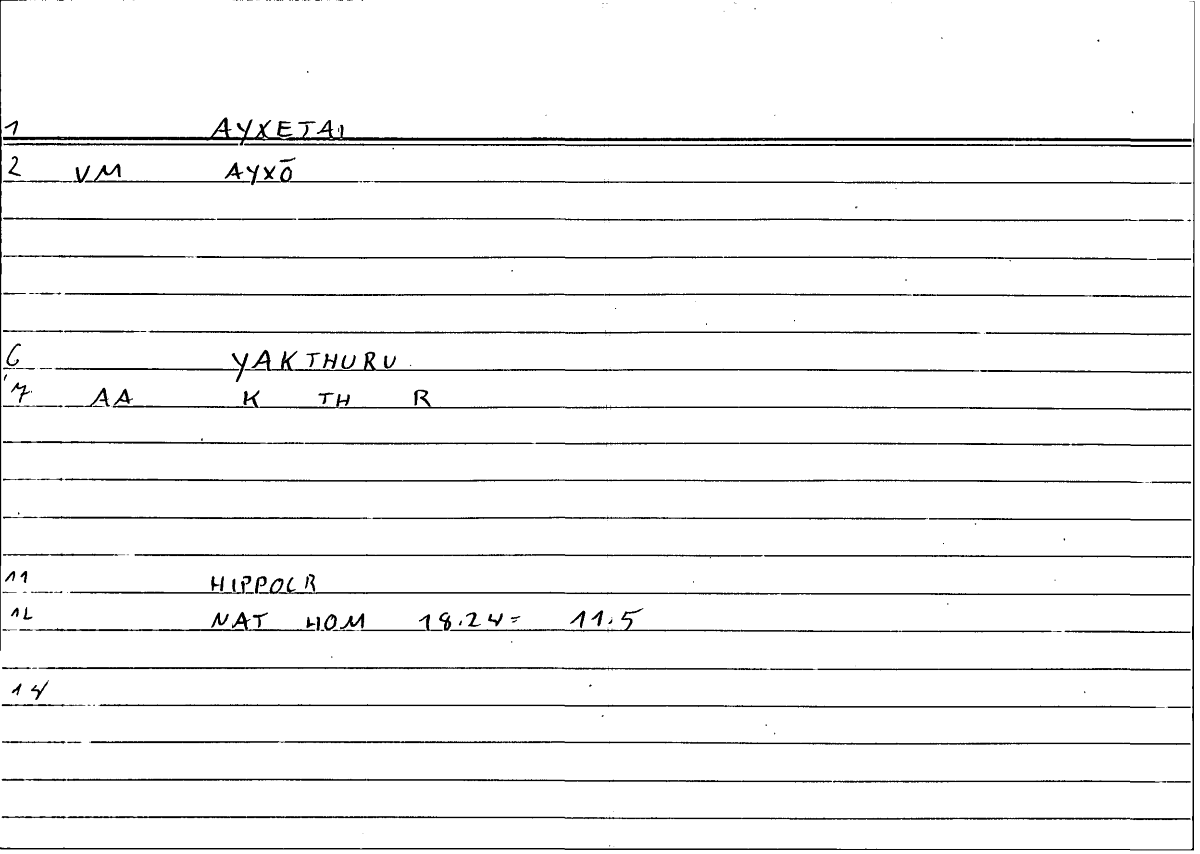 1 AYXETAI
2 VM AYXŌ
6 YAKTHURU
7 AA K TH R
11 HIPPOCR
12 NAT HOM 18.24= 11.5
14